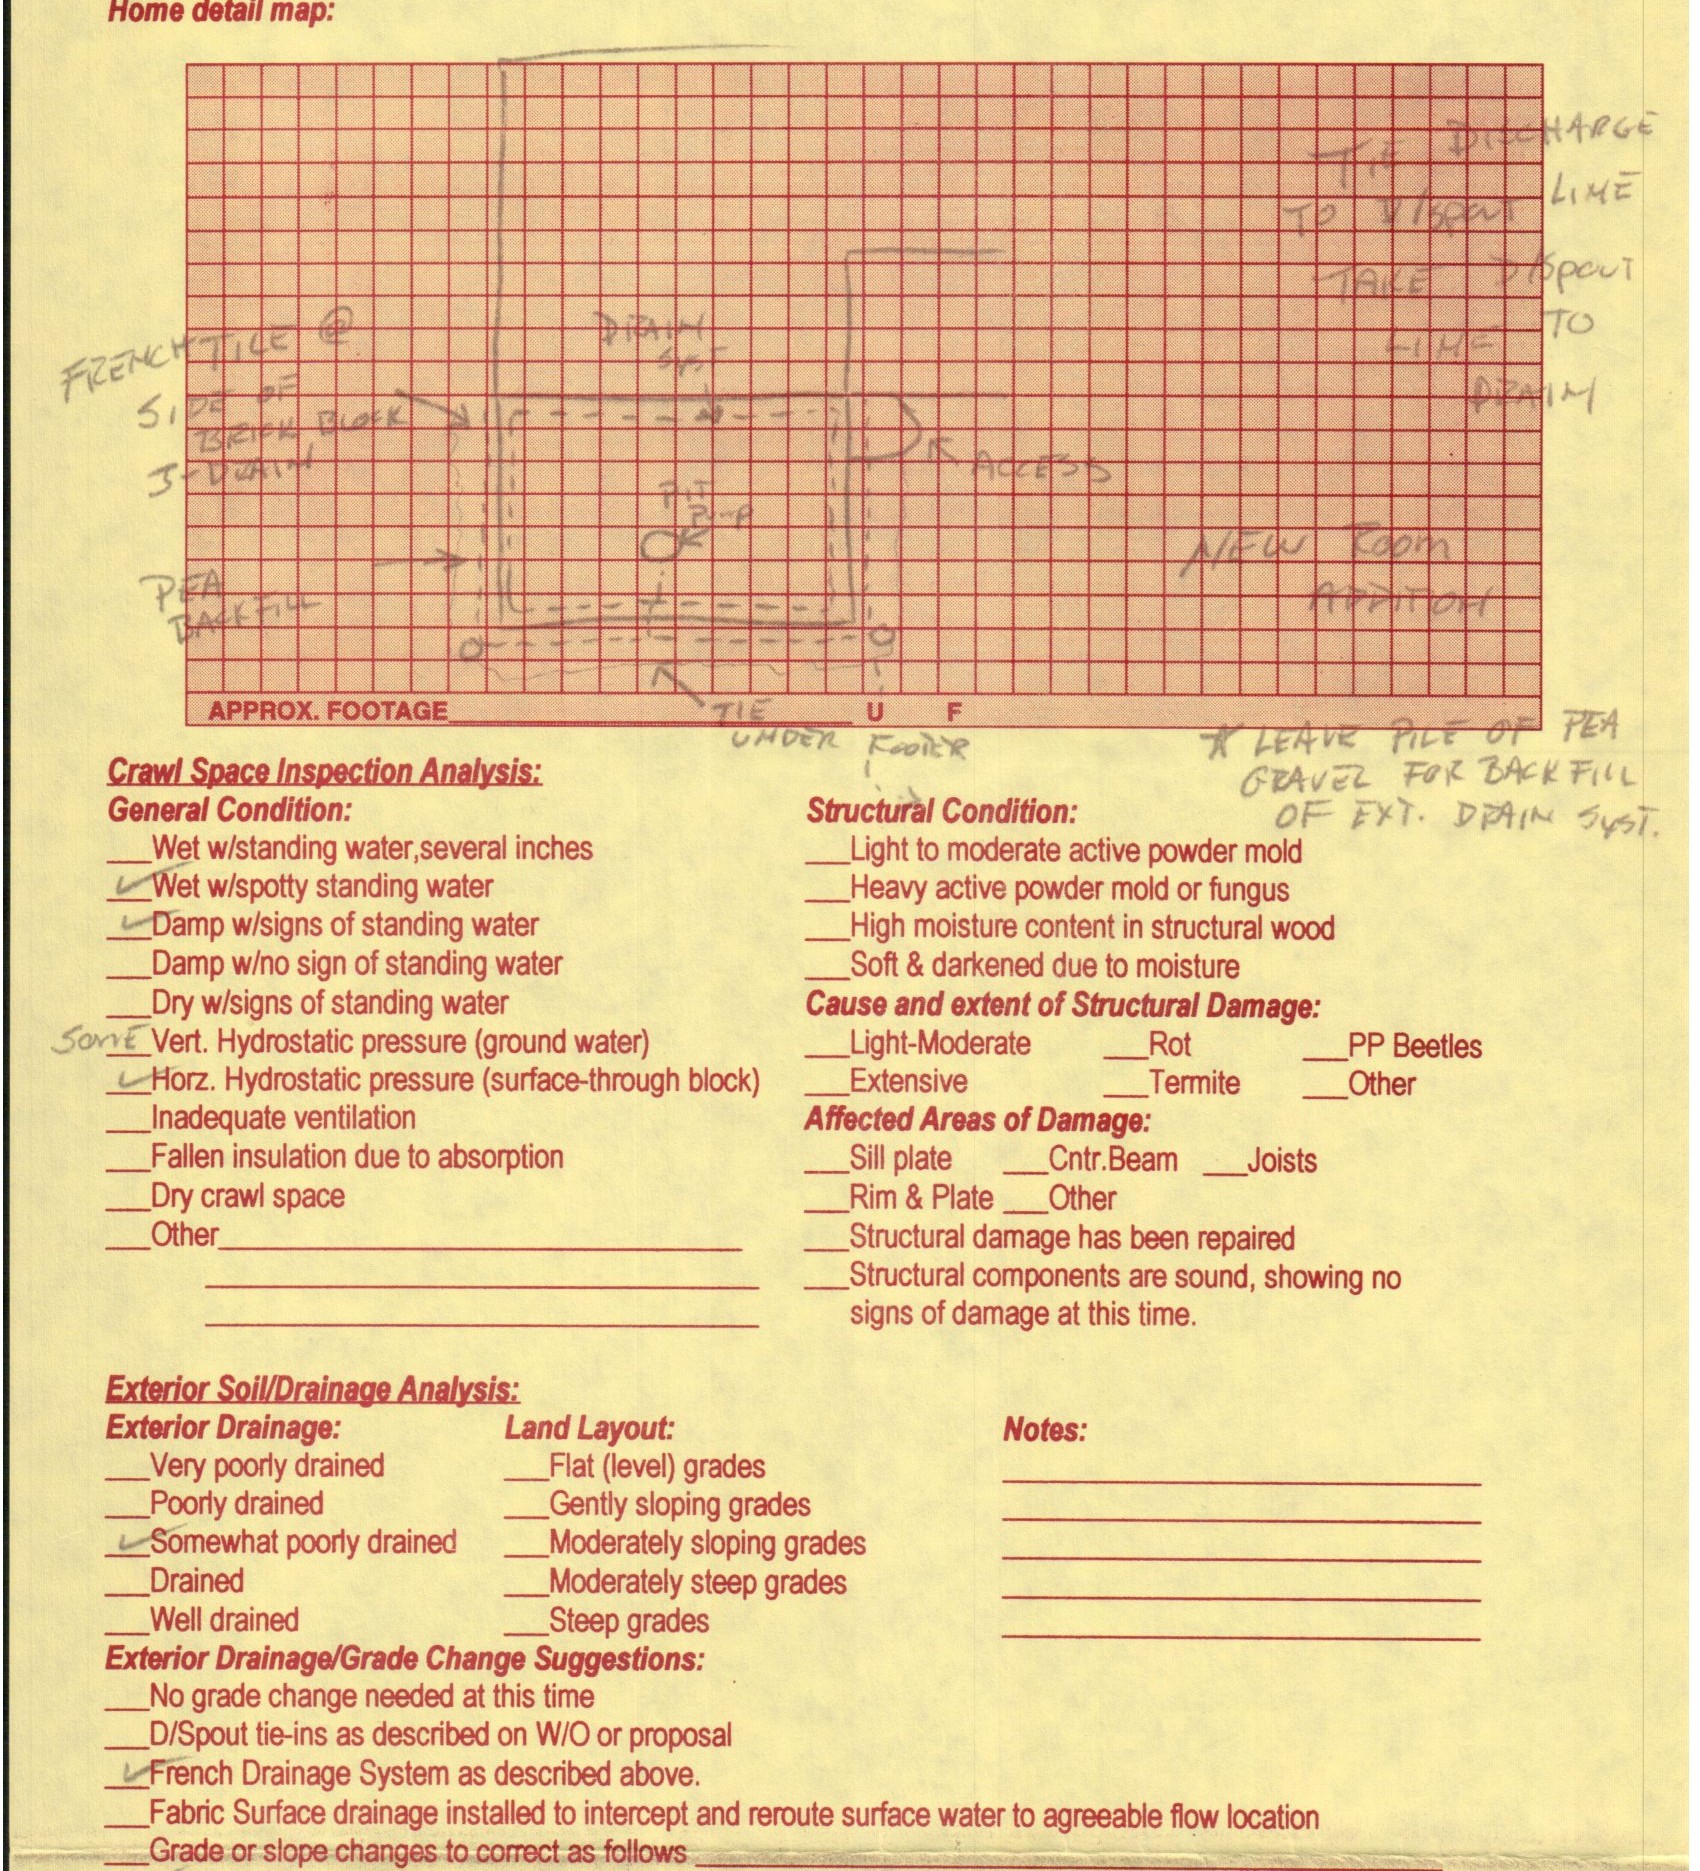 Home detail map:
DISCHARGE
TIE
LINE
TO D/SPOUT
TAKE D/SPOUT
TO
LINE
DRAIN
FRENCH TILE @
SIDE OF
BRICK, BLOCK
J-DRAIN
DRAIN
SYST
ACCESS
PIT
PUMP
NEW ROOM
ADDITION
PEA
BACKFILL
APPROX. FOOTAGE U F
TIE
UNDER FOOTER
* LEAVE PILE OF PEA
GRAVEL FOR BACKFILL
OF EXT. DRAIN SYST.
Crawl Space Inspection Analysis:
General Condition:
___Wet w/standing water,several inches
✓Wet w/spotty standing water
✓Damp w/signs of standing water
___Damp w/no sign of standing water
___Dry w/signs of standing water
SOME Vert. Hydrostatic pressure (ground water)
✓Horz. Hydrostatic pressure (surface-through block)
___Inadequate ventilation
___Fallen insulation due to absorption
___Dry crawl space
___Other
Structural Condition:
___Light to moderate active powder mold
___Heavy active powder mold or fungus
___High moisture content in structural wood
___Soft & darkened due to moisture
Cause and extent of Structural Damage:
___Light-Moderate ___Rot ___PP Beetles
___Extensive ___Termite ___Other
Affected Areas of Damage:
___Sill plate ___Cntr.Beam ___Joists
___Rim & Plate ___Other
___Structural damage has been repaired
___Structural components are sound, showing no
signs of damage at this time.
Exterior Soil/Drainage Analysis:
Exterior Drainage:
___Very poorly drained
___Poorly drained
✓Somewhat poorly drained
___Drained
___Well drained
Land Layout:
___Flat (level) grades
___Gently sloping grades
___Moderately sloping grades
___Moderately steep grades
___Steep grades
Notes:
Exterior Drainage/Grade Change Suggestions:
___No grade change needed at this time
___D/Spout tie-ins as described on W/O or proposal
✓French Drainage System as described above.
___Fabric Surface drainage installed to intercept and reroute surface water to agreeable flow location
___Grade or slope changes to correct as follows